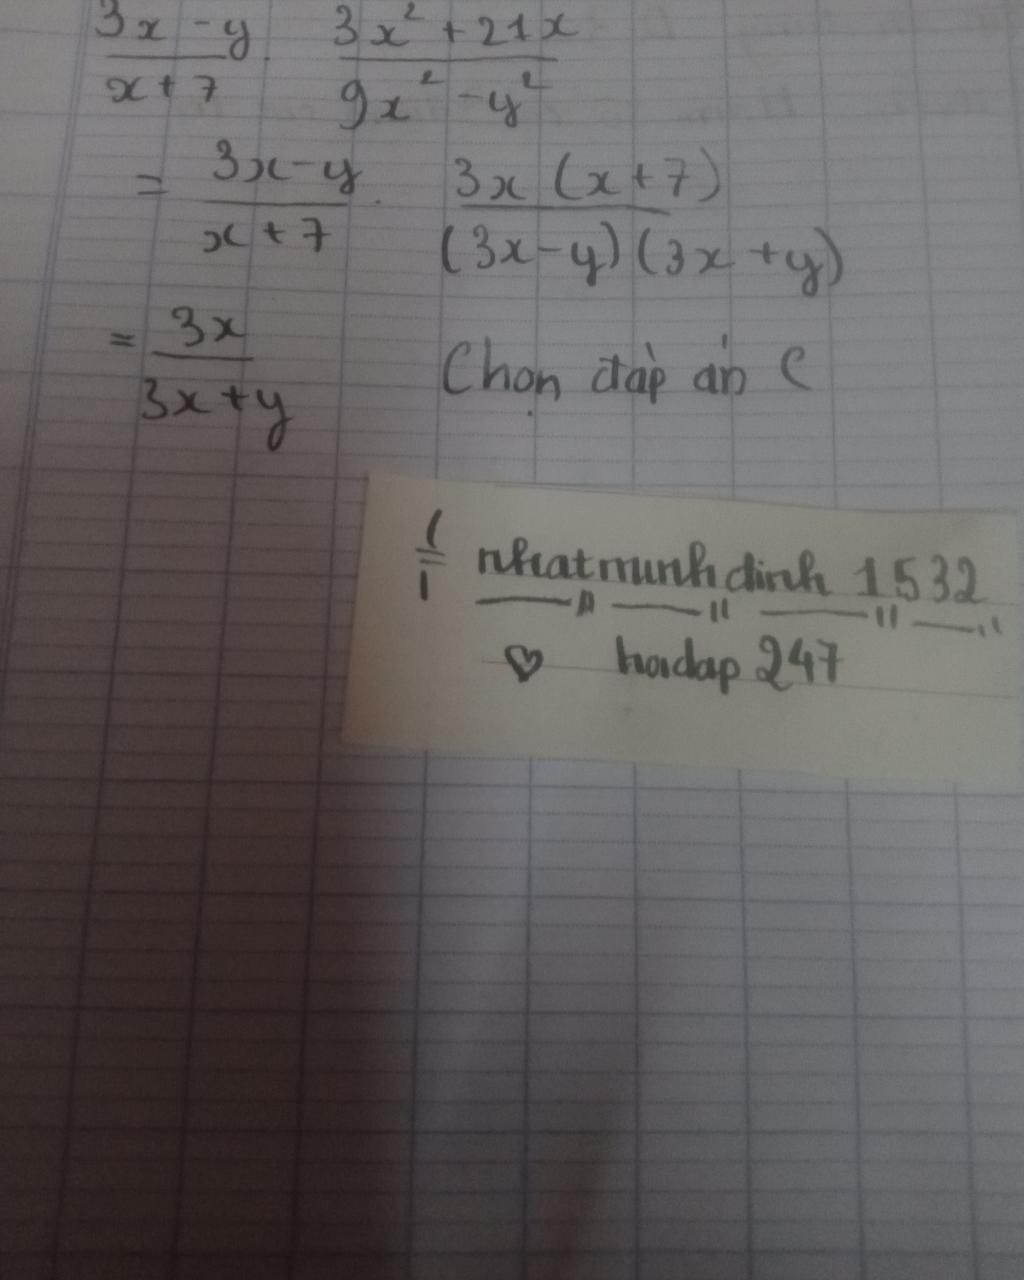 3x - y / x + 7 . 3x² + 21x / 9x² - y²
= 3x - y / x + 7 . 3x (x + 7) / (3x - y) (3x + y)
= 3x / 3x + y Chọn đáp án C
nhatminhdinh 1532
♡ hoidap 247